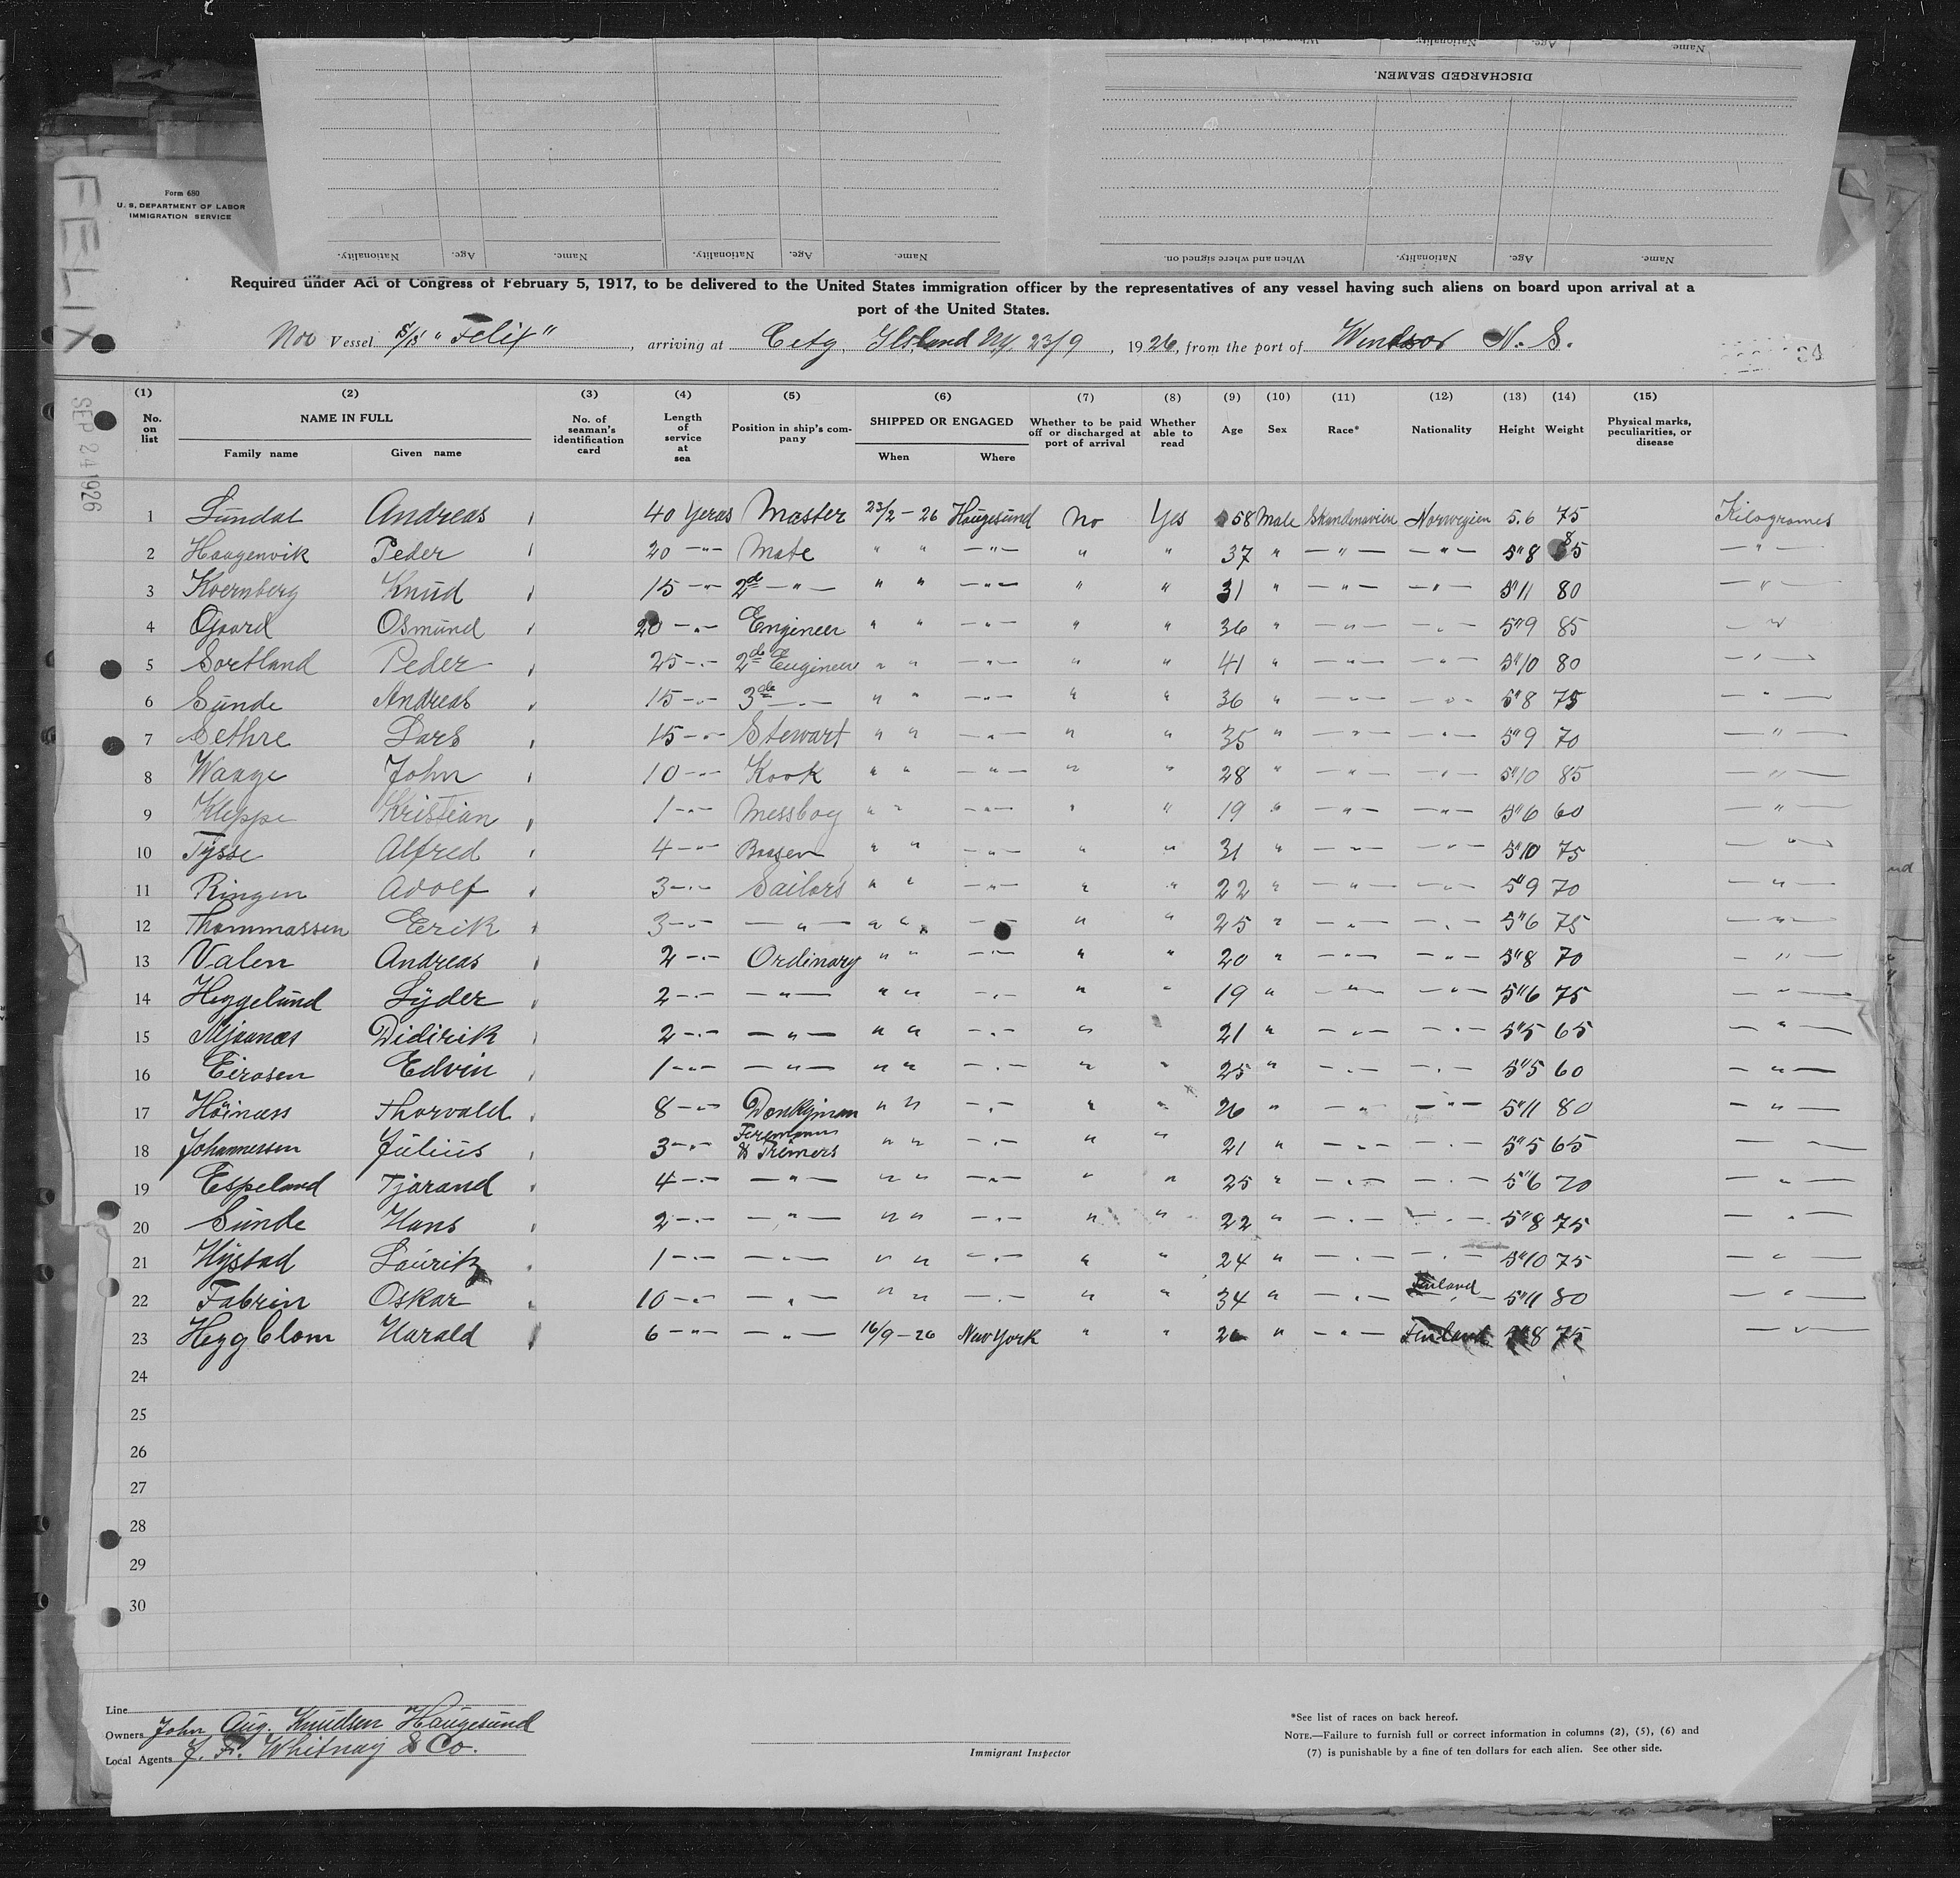 DISCHARGED SEAMEN.
Name Age. Nationality. When and where signed on.
Name. Age. Nationality. Name. Age. Nationality.
Name. Age. Nationality. When and where signed on.
FELIX
Form 680
U. S. DEPARTMENT OF LABOR
IMMIGRATION SERVICE
Required under Act of Congress of February 5, 1917, to be delivered to the United States immigration officer by the representatives of any vessel having such aliens on board upon arrival at a
port of the United States.
Nor Vessel S/S "Felix", arriving at City Ilsland N.Y. 23/9, 1926, from the port of Windsor N. S.
SEP 24 1926
(1) (2) (3) (4) (5) (6) (7) (8) (9) (10) (11) (12) (13) (14) (15)
No. on list NAME IN FULL Family name Given name No. of seaman's identification card Length of service at sea Position in ship's company SHIPPED OR ENGAGED When Where Whether to be paid off or discharged at port of arrival Whether able to read Age Sex Race* Nationality Height Weight Physical marks, peculiarities, or disease
1 Lundal Andreas 40 Yeras Master 23/2 - 26 Haugesund No Yes 58 Male Skandinavien Norwegien 5.6 75 Kilogrames
2 Haagenvik Peder 20 -"- Mate " " -"- " " 37 " -"- -"- 5"8 85 -"-
3 Kvernberg Knud 15 -"- 2d -"- " " -"- " " 31 " -"- -"- 5"11 80 -"-
4 Osmund 20 -"- Engineer " " -"- " " 36 " -"- -"- 5"9 85 -"-
5 Sortland Peder 25 -"- 2d Engineer " " -"- " " 41 " -"- -"- 5"10 80 -"-
6 Sunde Andreas 15 -"- 3de -"- " " -"- " " 36 " -"- -"- 5"8 75 -"-
7 Sethre Lars 15 -"- Stewart " " -"- " " 35 " -"- -"- 5"9 70 -"-
8 Waage John 10 -"- Kook " " -"- " " 28 " -"- -"- 5"10 85 -"-
9 Kleppe Kristian 1 -"- Messboy " " -"- " " 19 " -"- -"- 5"6 60 -"-
10 Tysse Alfred 4 -"- Boasen " " -"- " " 31 " -"- -"- 5"10 75 -"-
11 Ringen Adolf 3 -"- Sailors " " -"- " " 22 " -"- -"- 5"9 70 -"-
12 Thommassen Erik 3 -"- -"- " " -"- " " 25 " -"- -"- 5"6 75 -"-
13 Valen Andreas 2 -"- Ordinary " " -"- " " 20 " -"- -"- 5"8 70 -"-
14 Heggelund Lyder 2 -"- -"- " " -"- " " 19 " -"- -"- 5"6 75 -"-
15 Didirik 2 -"- -"- " " -"- " " 21 " -"- -"- 5"5 65 -"-
16 Eirosen Edvin 1 -"- -"- " " -"- " " 25 " -"- -"- 5"5 60 -"-
17 Höinæss Thorvald 8 -"- Donkyman " " -"- " " 26 " -"- -"- 5"11 80 -"-
18 Johannessen Julius 3 -"- Firemans & Trimers " " -"- " " 21 " -"- -"- 5"5 65 -"-
19 Espeland Tjerand 4 -"- -"- " " -"- " " 25 " -"- -"- 5"6 70 -"-
20 Sunde Hans 2 -"- -"- " " -"- " " 22 " -"- -"- 5"8 75 -"-
21 Hystad Lauritz 1 -"- -"- " " -"- " " 24 " -"- -"- 5"10 75 -"-
22 Fabrin Oskar 10 -"- -"- " " -"- " " 34 " -"- Finland 5"11 80 -"-
23 Heggblom Harald 6 -"- -"- 16/9 - 26 New York " " 26 " -"- Finland 5"8 75 -"-
24
25
26
27
28
29
30
Line
Owners John Aug. Knudsen Haugesund
Local Agents J. F. Whitnay & Co.
Immigrant Inspector
*See list of races on back hereof.
NOTE.—Failure to furnish full or correct information in columns (2), (5), (6) and
(7) is punishable by a fine of ten dollars for each alien. See other side.